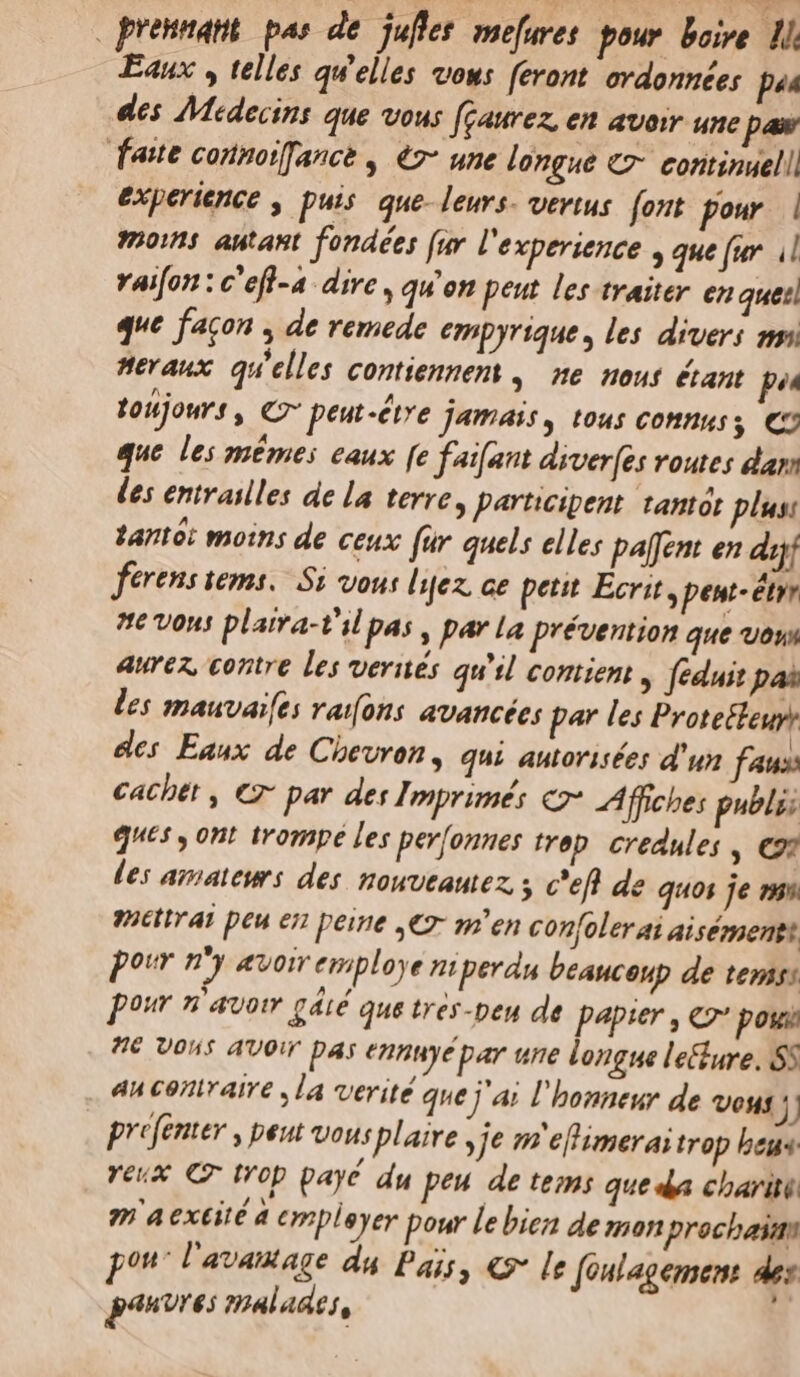 prennant pas de juſtes meſures pour boire
Eaux, telles qu'elles vous ſeront ordonnées
des Medecins que vous ſçaurez en avoir une
faite connoiſſance, & une longue & continuel
experience, puis que leurs vertus ſont pour
moins autant fondées ſur l'experience, que ſur
raiſon: c'eſt-à dire, qu'on peut les traiter en quel
que façon, de remede empyrique, les divers mi
neraux qu'elles contiennent, ne nous étant
toûjours, & peut-être jamais, tous connus; &
que les mêmes eaux ſe faiſant diverſes routes dan
les entrailles de la terre, participent tantôt plus
tantôt moins de ceux ſur quels elles paſſent en dif
ferens tems. Si vous liſez ce petit Ecrit, peut-êtr
ne vous plaira-t'il pas, par la prévention que vous
aurez contre les verités qu'il contient, ſeduit pa
les mauvaiſes raiſons avancées par les Protecteur
des Eaux de Chevron, qui autoriſées d'un faux
cachet, & par des Imprimés & Affiches publi
ques, ont trompé les perſonnes trop credules, &
les amateurs des nouveautez; c'eſt de quoi je m
mettrai peu en peine, & m'en conſolerai aisément
pour n'y avoir employe ni perdu beaucoup de tems
pour n'avoir gâté que tres-peu de papier, & pour
ne vous avoir pas ennuyé par une longue lecture. S
au contraire, la verité que j'ai l'honneur de vous
préſenter, peut vous plaire, je m'eſtimerai trop heu
reux & trop payé du peu de tems que la charité
m'a excité à employer pour le bien de mon prochain
pou l'avantage du Païs, & le ſoulagement des
pauvres malades,